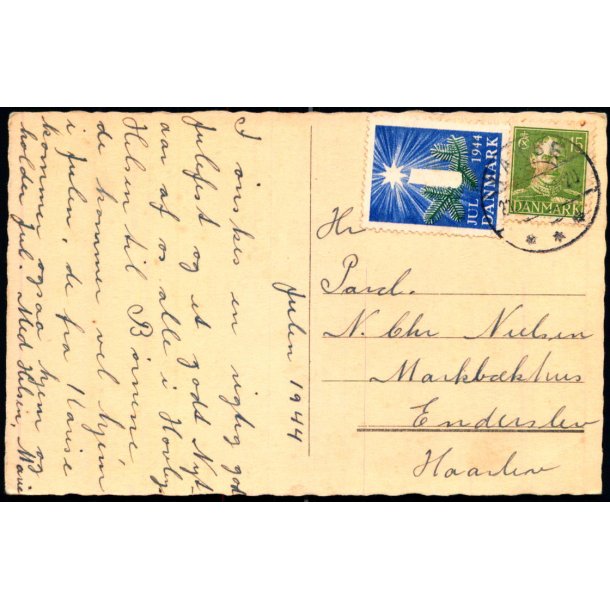 Julen 1944
I ønskes en rigtig god
Julefest og et godt Nyt-
aar af os alle i Hovby.
Hilsen til Børnene
de kommer vel hjem
i Julen, de fra Hanse
kommer ogsaa hjem og
holder Jul. Med Hilsen, Marie
JUL 1944
DANMARK
15
DANMARK
Hr
Parcl.
N. Chr Nielsen
Markbækhus
Enderslev
Haarlev